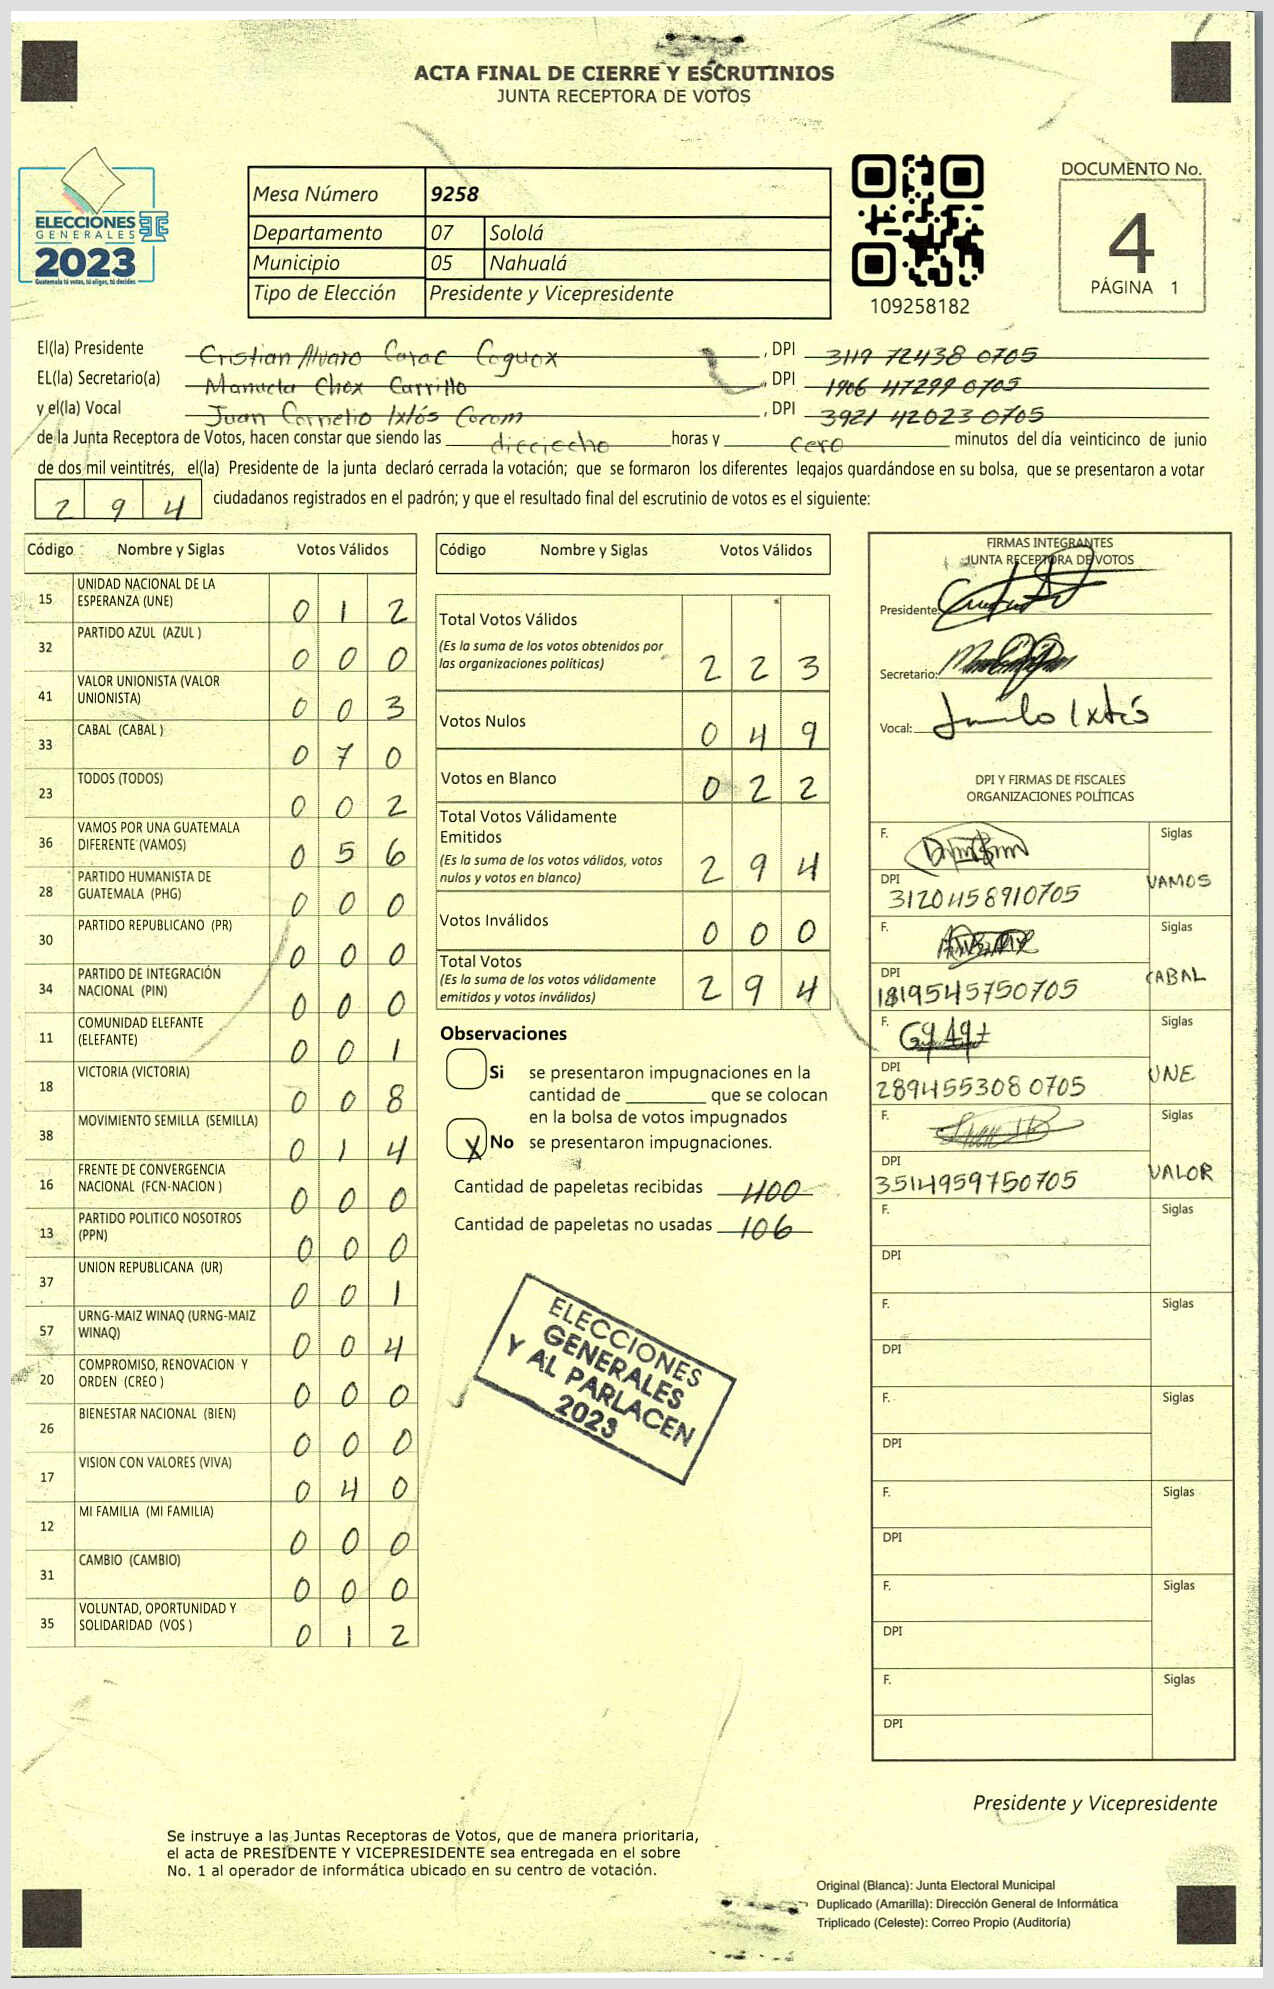 ACTA FINAL DE CIERRE Y ESCRUTINIOS
JUNTA RECEPTORA DE VOTOS
ELECCIONES
GENERALES
2023
Guatemala tú votas, tú eliges, tú decides
Mesa Número 9258
Departamento 07 Sololá
Municipio 05 Nahualá
Tipo de Elección Presidente y Vicepresidente
109258182
DOCUMENTO No.
4
PÁGINA 1
El(la) Presidente Cristian Alvaro Carac Coguox , DPI 3119 72438 0705
EL(la) Secretario(a) Manuela Chox Carrillo , DPI 1906 47299 0705
y el(la) Vocal Juan Cornelio Ixtós Cocom , DPI 3921 42023 0705
de la Junta Receptora de Votos, hacen constar que siendo las dieciocho horas y cero minutos del día veinticinco de junio
de dos mil veintitrés, el(la) Presidente de la junta declaró cerrada la votación; que se formaron los diferentes legajos guardándose en su bolsa, que se presentaron a votar
2 9 4 ciudadanos registrados en el padrón; y que el resultado final del escrutinio de votos es el siguiente:
Código Nombre y Siglas Votos Válidos
15 UNIDAD NACIONAL DE LA ESPERANZA (UNE) 0 1 2
32 PARTIDO AZUL (AZUL ) 0 0 0
41 VALOR UNIONISTA (VALOR UNIONISTA) 0 0 3
33 CABAL (CABAL ) 0 7 0
23 TODOS (TODOS) 0 0 2
36 VAMOS POR UNA GUATEMALA DIFERENTE (VAMOS) 0 5 6
28 PARTIDO HUMANISTA DE GUATEMALA (PHG) 0 0 0
30 PARTIDO REPUBLICANO (PR) 0 0 0
34 PARTIDO DE INTEGRACIÓN NACIONAL (PIN) 0 0 0
11 COMUNIDAD ELEFANTE (ELEFANTE) 0 0 1
18 VICTORIA (VICTORIA) 0 0 8
38 MOVIMIENTO SEMILLA (SEMILLA) 0 1 4
16 FRENTE DE CONVERGENCIA NACIONAL (FCN-NACION ) 0 0 0
13 PARTIDO POLITICO NOSOTROS (PPN) 0 0 0
37 UNION REPUBLICANA (UR) 0 0 1
57 URNG-MAIZ WINAQ (URNG-MAIZ WINAQ) 0 0 4
20 COMPROMISO, RENOVACION Y ORDEN (CREO ) 0 0 0
26 BIENESTAR NACIONAL (BIEN) 0 0 0
17 VISION CON VALORES (VIVA) 0 4 0
12 MI FAMILIA (MI FAMILIA) 0 0 0
31 CAMBIO (CAMBIO) 0 0 0
35 VOLUNTAD, OPORTUNIDAD Y SOLIDARIDAD (VOS ) 0 1 2
Código Nombre y Siglas Votos Válidos
Total Votos Válidos
(Es la suma de los votos obtenidos por
las organizaciones politicas) 2 2 3
Votos Nulos 0 4 9
Votos en Blanco 0 2 2
Total Votos Válidamente
Emitidos
(Es la suma de los votos válidos, votos
nulos y votos en blanco) 2 9 4
Votos Inválidos 0 0 0
Total Votos
(Es la suma de los votos válidamente
emitidos y votos inválidos) 2 9 4
Observaciones
Si se presentaron impugnaciones en la
cantidad de ________ que se colocan
en la bolsa de votos impugnados
X No se presentaron impugnaciones.
Cantidad de papeletas recibidas 400
Cantidad de papeletas no usadas 106
ELECCIONES
GENERALES
Y AL PARLACEN
2023
FIRMAS INTEGRANTES
JUNTA RECEPTORA DE VOTOS
Presidente:
Secretario:
Vocal: Ixtós
DPI Y FIRMAS DE FISCALES
ORGANIZACIONES POLÍTICAS
F. Siglas
DPI 3120458910705 VAMOS
F. Siglas
DPI 1819545750705 CABAL
F. Siglas
DPI 2894553080705 UNE
F. Siglas
DPI 3514959750705 VALOR
F. Siglas
DPI
F. Siglas
DPI
F. Siglas
DPI
F. Siglas
DPI
F. Siglas
DPI
F. Siglas
DPI
Presidente y Vicepresidente
Se instruye a las Juntas Receptoras de Votos, que de manera prioritaria,
el acta de PRESIDENTE Y VICEPRESIDENTE sea entregada en el sobre
No. 1 al operador de informática ubicado en su centro de votación.
Original (Blanca): Junta Electoral Municipal
Duplicado (Amarilla): Dirección General de Informática
Triplicado (Celeste): Correo Propio (Auditoría)